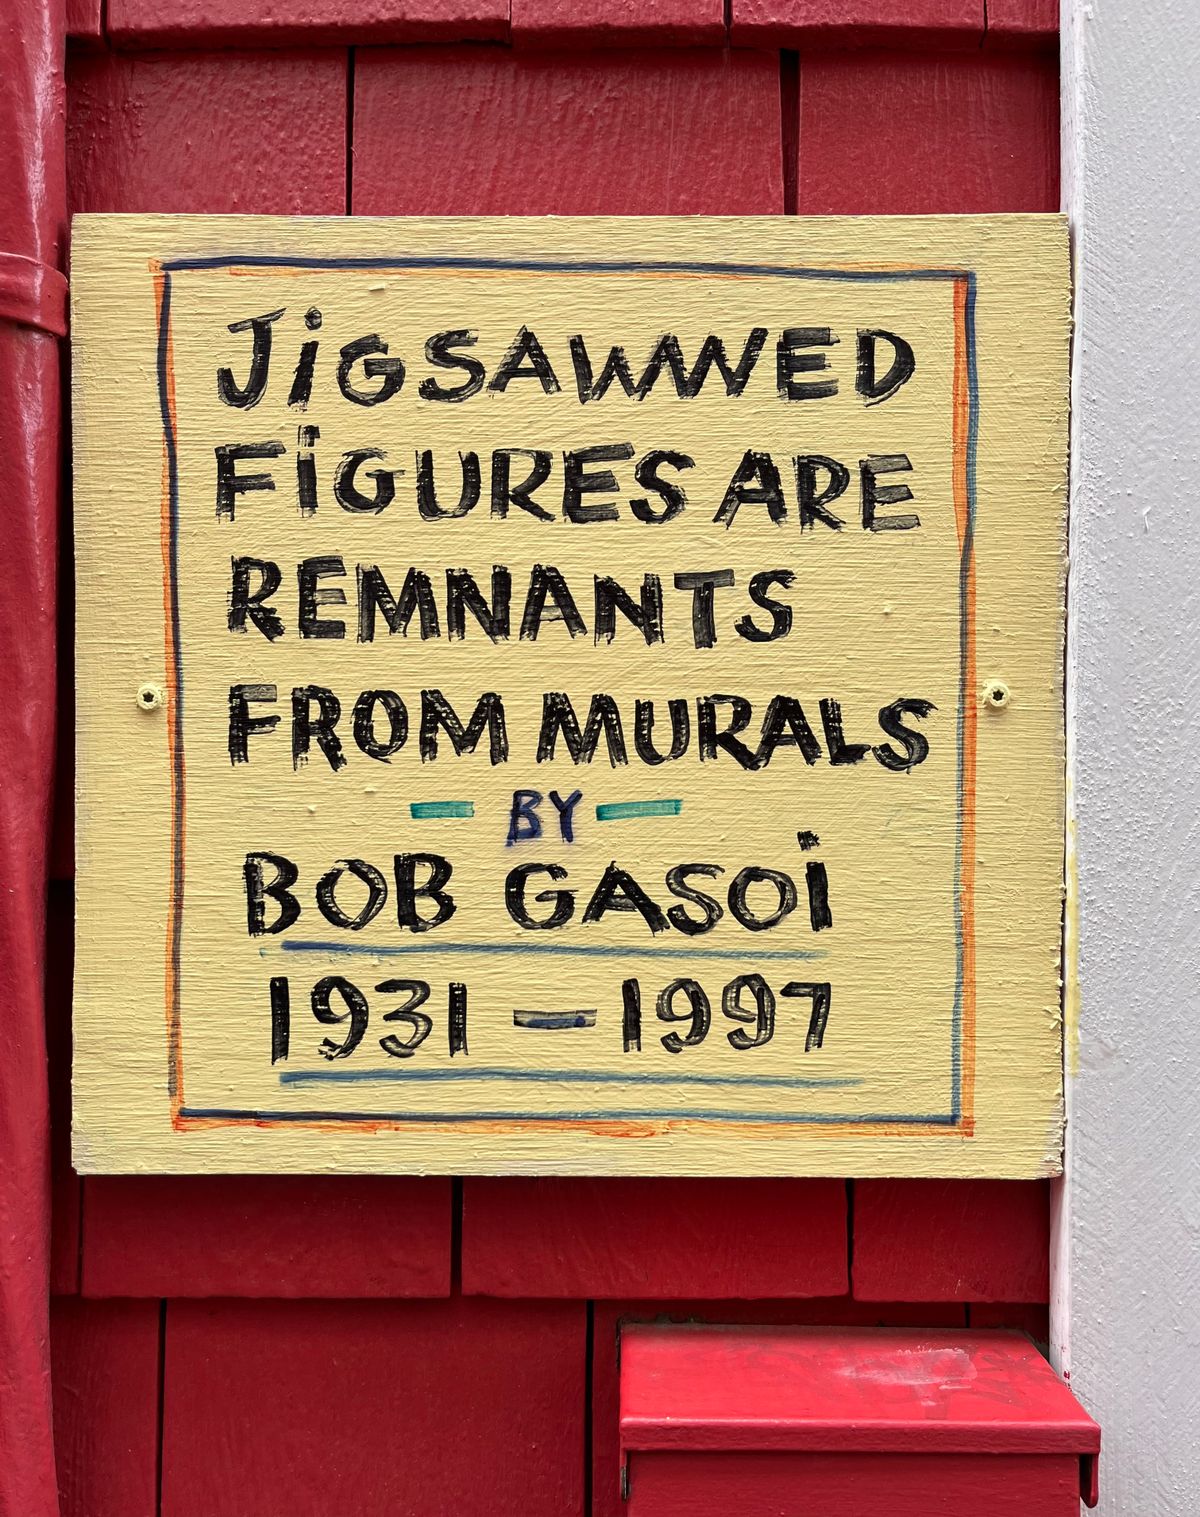 JiGSAWWED
FiGURES ARE
REMNANTS
FROM MURALS
— BY —
BOB GASOi
1931 — 1997